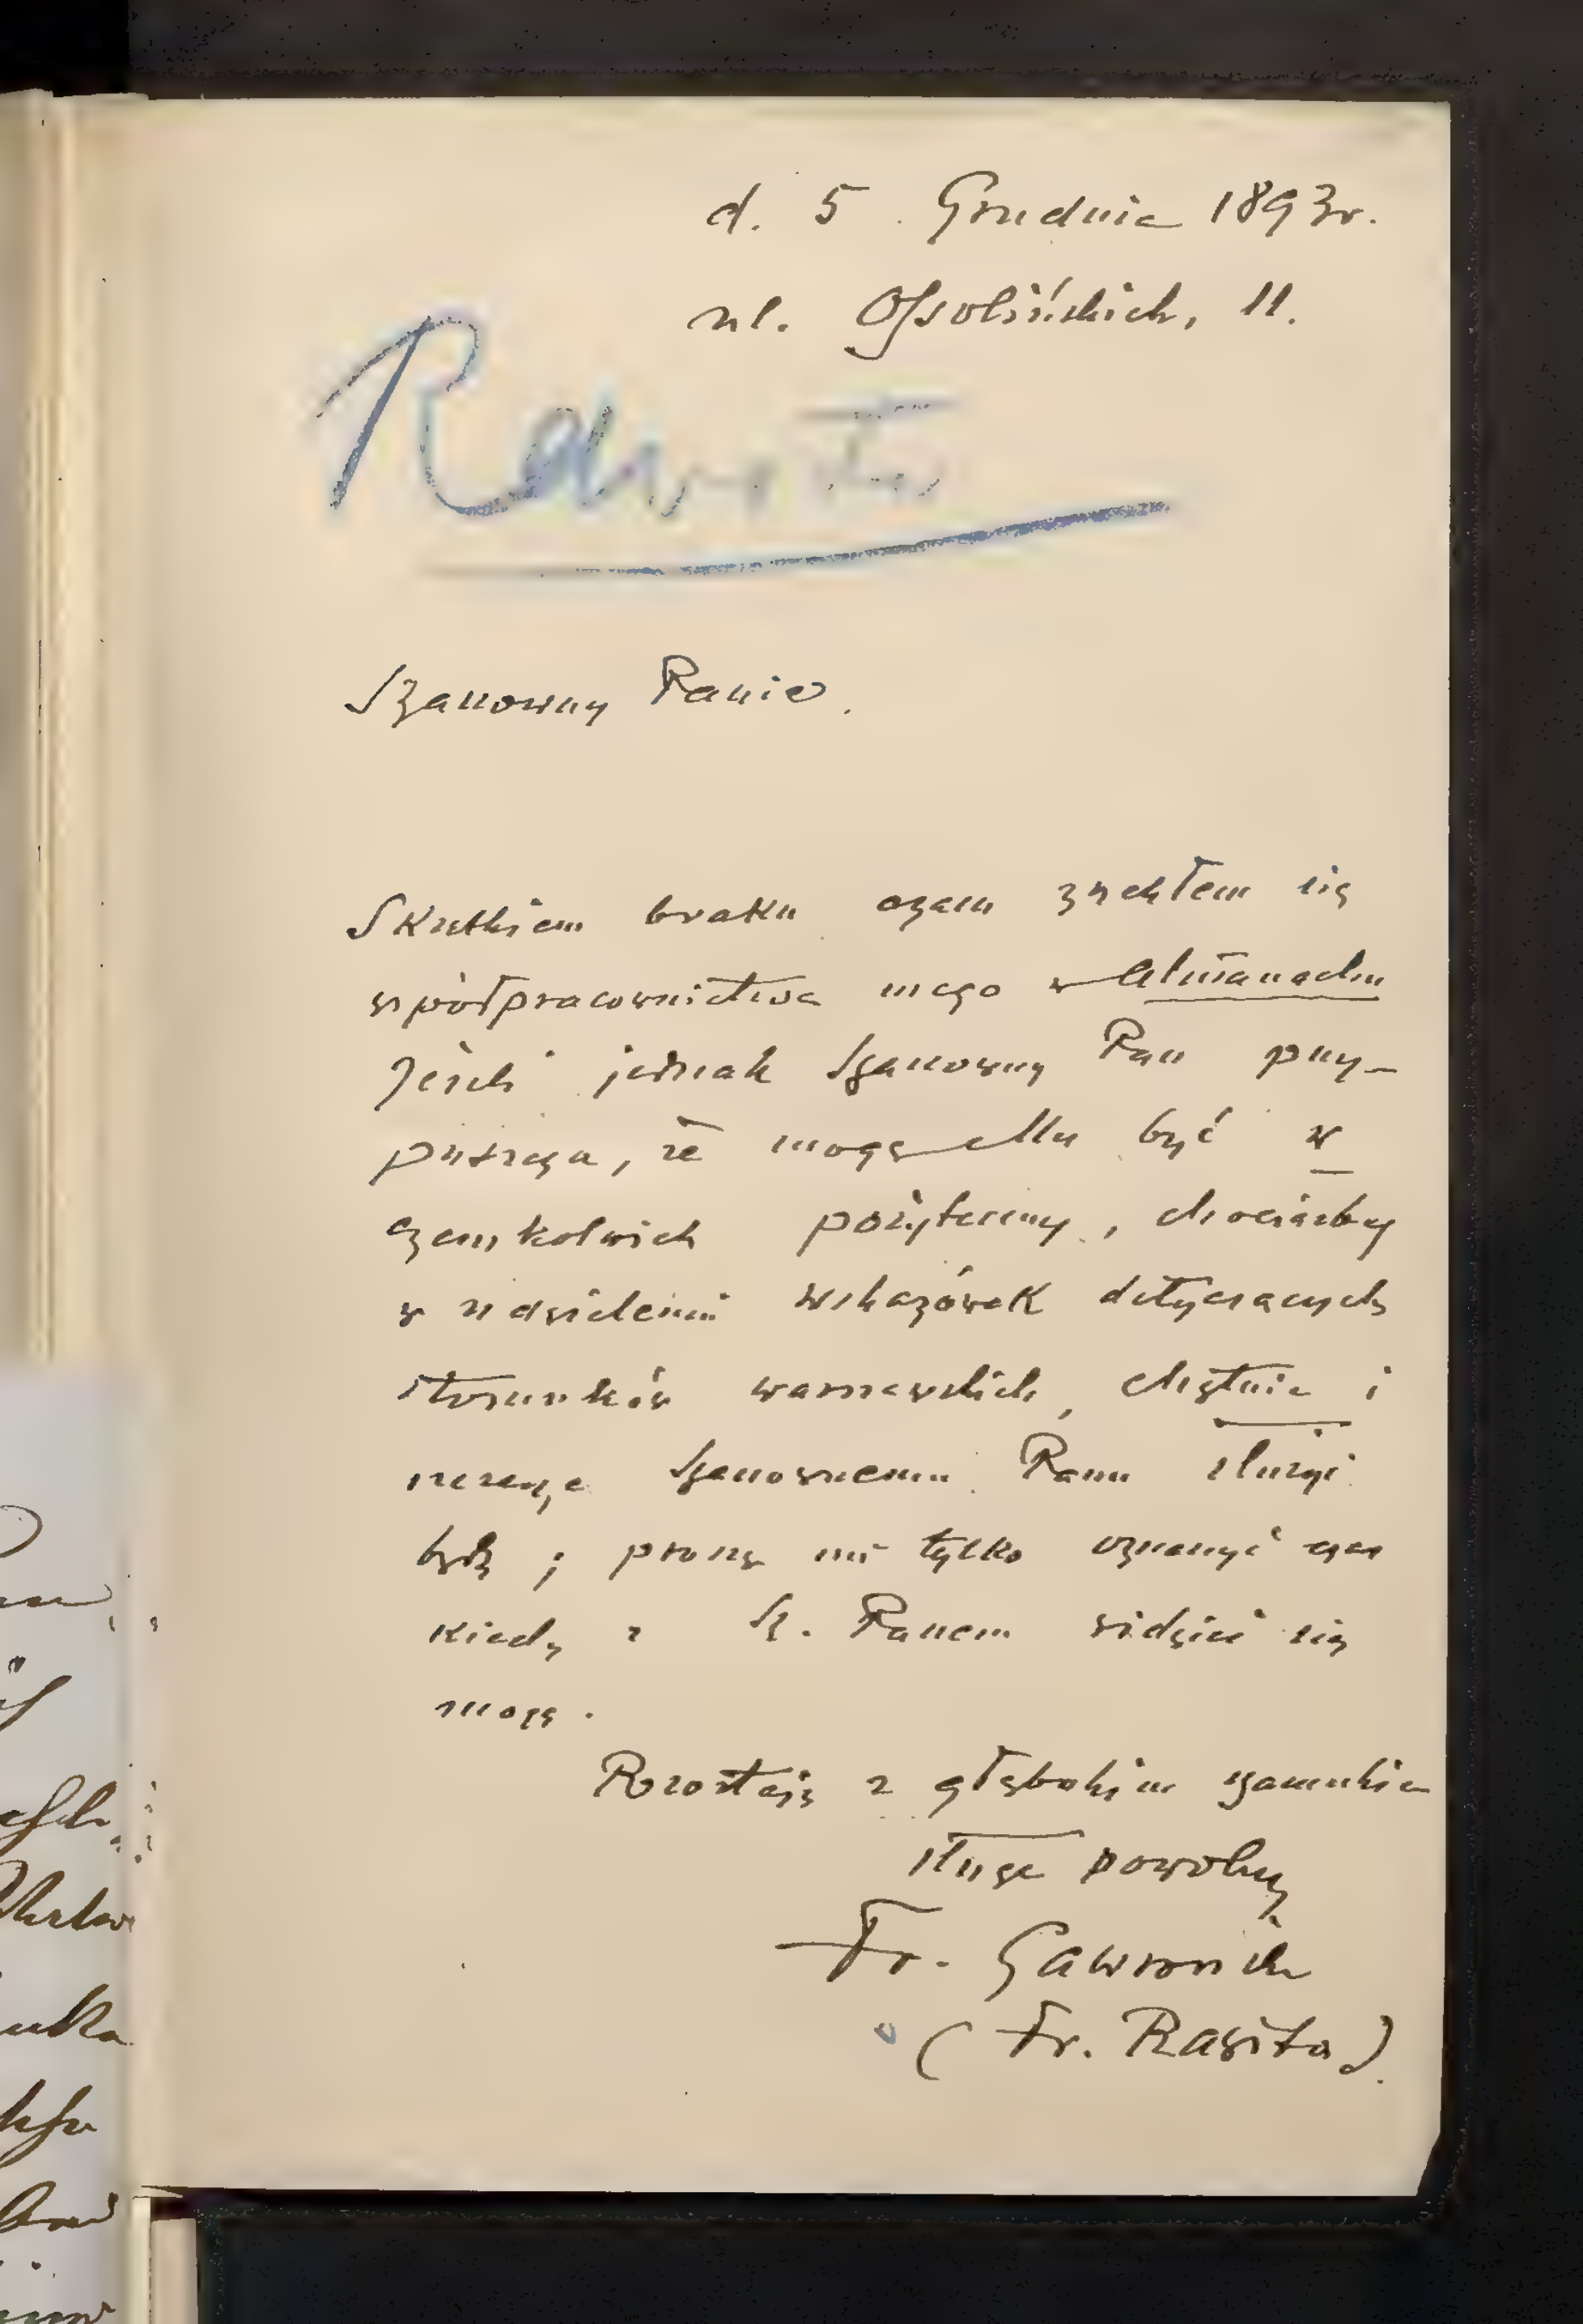 d. 5 Grudnia 1893r.
ul. Ossolińskich, 11.
Rawita
Szanowny Panie.
Skutkiem braku czasu zrzekłem się
współpracownictwa mego w Almanachu
Jeśli jednak Szanowny Pan przy-
puszcza, że mogę Mu być w
czemkolwiek pożyteczny, chociażby
w udzieleniu wskazówek dotyczących
stosunków warszawskich, chętnie i
szczerze Szanownemu Panu służyć
będę; proszę mi tylko oznaczyć czas
kiedy z Sz. Panem widzieć się
mogę.
Pozostaję z głębokim szacunkiem
sługa powolny
Fr. Gawroński
(Fr. Rawita).